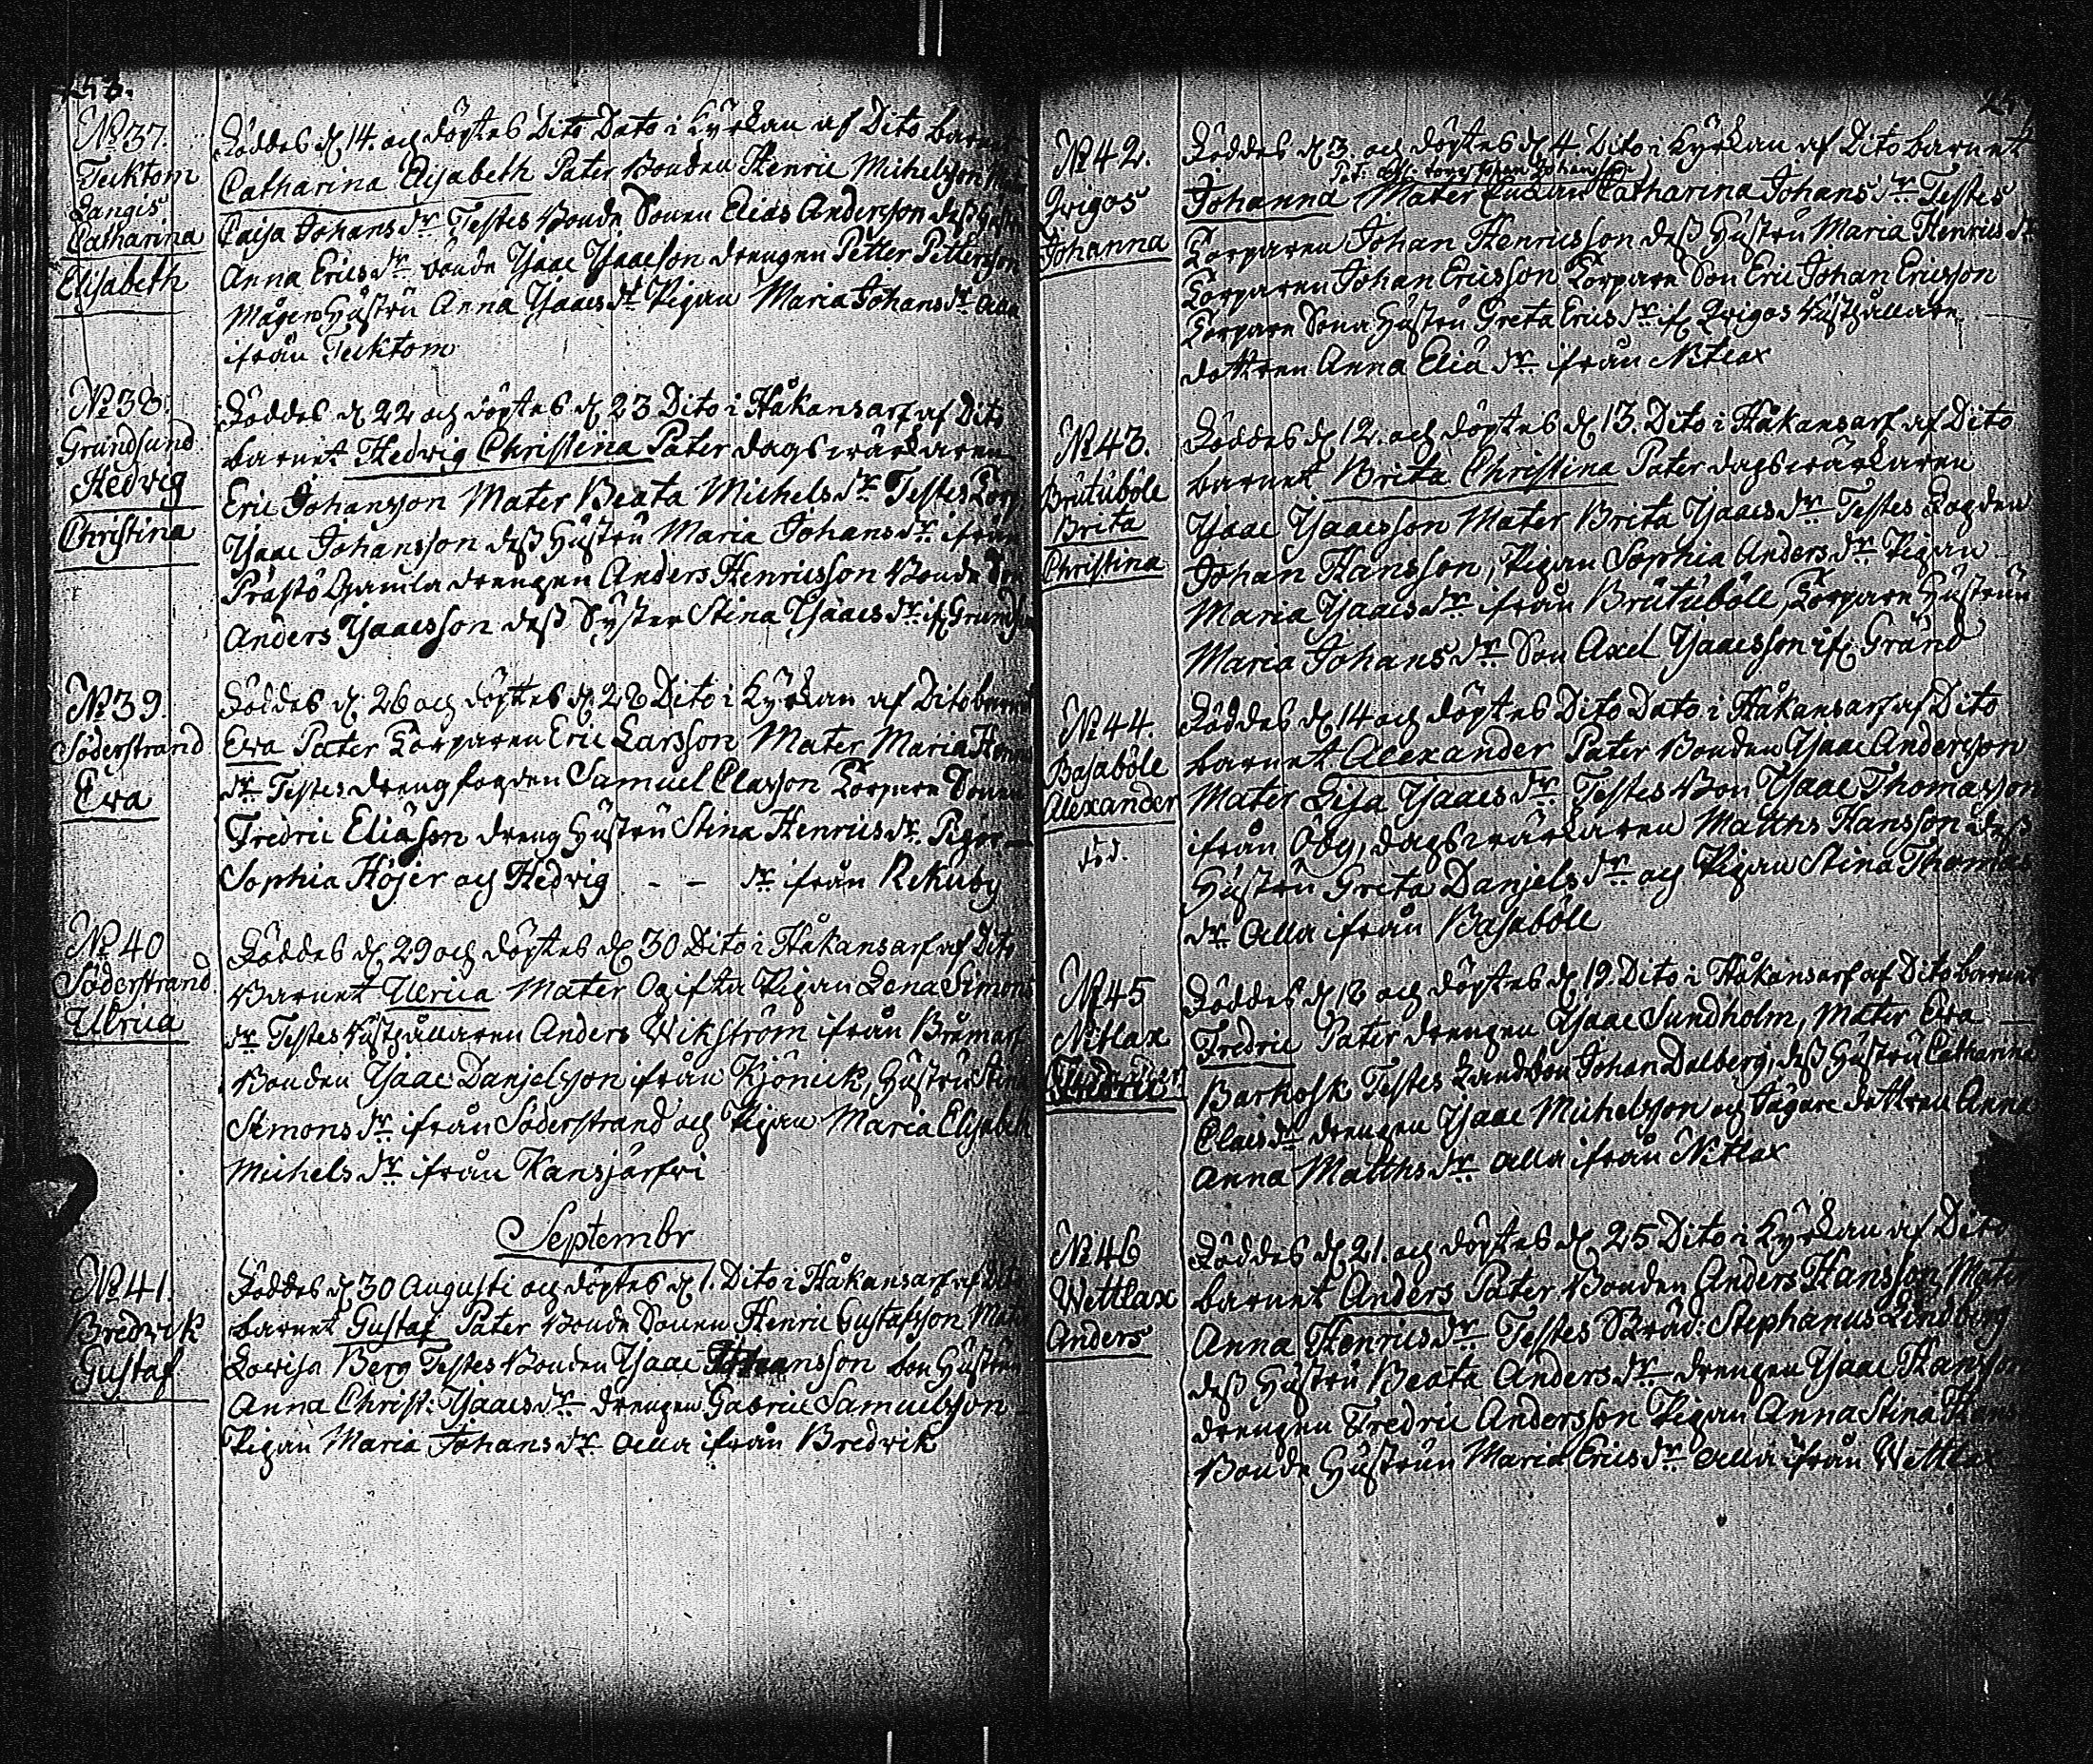 No 37.
Tecktom
Langis
Catharina
Elisabeth
Föddes d. 14. och döptes Dito Dato i Kyrkan af Dito barnet
Catharina Elisabeth Pater Bonden Henric Michelsson
Caisa Johans dr. Testes Bonde Sonen Elias Andersson dess
Anna Erics dr. bonde Isaac Isaacsson drengen Petter Pettersson
Mågens Hustru Anna Isaacs dr. Pigan Maria Johans dr. alla
ifrån Tecktom
No 38.
Grundsund
Hedvig
Christina
Föddes d. 22 och döptes d. 23 Dito i Håkansarf af Dito
barnet Hedvig Christina Pater dagswärkaren
Eric Johansson Mater Beata Michels dr. Testes
Isaac Johansson dess Hustru Maria Johans dr. ifrån
Prästö Gamla drengen Anders Henricsson Bonde
Anders Isaacsson dess Syster Stina Isaacs dr. if.
No 39.
Söderstrand
Eva
Föddes d. 26 och döptes d. 28 Dito i Kyrkan af Dito barnet
Eva Pater Torparen Eric Larsson Mater Maria
dr. Testes drengfogden Samuel Classon Torpare Sonen
Fredric Eliasson dreng Hustru Stina Henrics dr. Pigor
Sophia Höjer och Hedvig - - dr. ifrån Rekuby
No 40
Söderstrand
Ulrica
Föddes d. 29 och döptes d. 30 Dito i Håkansarf af Dito
Barnet Ulrica Mater Ogifta Pigan Lena Simons
dr. Testes Rusthållaren Anders Wikström ifrån Bromarf
Bonden Isaac Danjelsson ifrån Kjönick, Hustru Stina
Simons dr. ifrån Söderstrand och Pigan Maria Elisabeth
Michels dr. ifrån Kansjärfvi
Septembr
No 41.
Bredvik
Gustaf
Föddes d. 30 Augusti och döptes d. 1. Dito i Håkansarf af Dito
barnet Gustaf Pater Bonde Sonen Henric Gustafsson
Lovisa Berg Testes Bonden Isaac Johansson bon Hustrun
Anna Christ: Isaacs dr. drengen Gabriel Samuelsson
Pigan Maria Johans dr. alla ifrån Bredvik
No 42.
Qvigos
Johanna
Föddes d. 3 och döptes d. 4 Dito i Kyrkan af Dito barnet
Johan Johansson
Johanna Mater Catharina Johans dr. Testes
Torparen Johan Henricsson dess Hustru Maria Henrics dr.
Torparen Johan Ericsson Torpare Son Eric Johan Ericsson
Torpare Sona Hustru Greta Erics dr. if. Qvigos Rusthållare
dottren Anna Elia dr. ifrån Nitlax
No 43.
Brutuböle
Brita
Christina
Föddes d. 12. och döptes d. 13. Dito i Håkansarf af Dito
barnet Brita Christina Pater dagswärkaren
Isaac Isaacsson Mater Brita Isaacs dr. Testes Fogden
Johan Hansson, Pigan Sophia Anders dr. Pigan
Maria Isaacs dr. ifrån Brutuböle, Torpare Hustrun
Maria Johans dr. Son Axel Isaacsson if. Gränd
No 44.
Basaböle
Alexander
död.
Föddes d. 14 och döptes Dito Dato i Håkansarf af Dito
barnet Alexander Pater Bonden Isaac Andersson
Mater Lisa Isaacs dr. Testes Bon Isaac Thomasson
ifrån Öby, dagswärkaren Matths Hansson dess
Hustru Greta Danjels dr. och Pigan Stina Thomas
dr. alla ifrån Basaböle
No 45
Nitlax
Fredric
Föddes d. 18 och döptes d. 19. Dito i Håkansarf af Dito barnet
Fredric Pater drengen Isaac Sundholm, Mater Eva
Barkosk Testes Landbon Johan Dalberg, dess Hustru Catharina
Claes dr. drengen Isaac Michelsson och Jägare dottren Anna
Anna Matths dr. alla ifrån Nitlax
No 46
Wettlax
Anders
Föddes d. 21. och döptes d. 25 Dito i Kyrkan af Dito
barnet Anders Pater Bonden Anders Hansson, Mater
Anna Henrics dr. Testes Skräd: Stephanus Lindberg
dess Hustru Beata Anders dr. drengen Isaac Hansson
drengen Fredric Andersson Pigan Anna Stina Hans
Bonde Hustrun Maria Erics dr. alla ifrån Wettlax